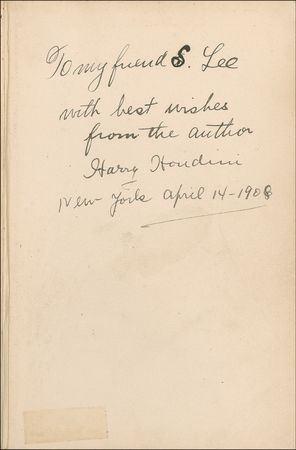 To my friend S. Lee
with best wishes
from the author
Harry Houdini
New York April 14-1908